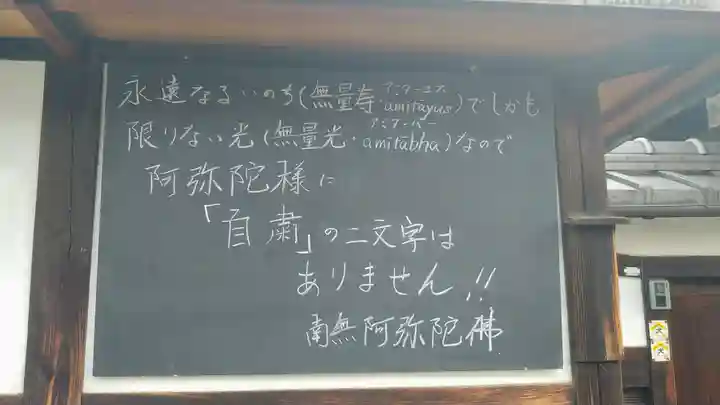 永遠なるいのち(無量寿・amitāyus)でしかも
アミターユス
限りない光(無量光・amitābha)なので
アミターバー
阿弥陀様に
「自粛」の二文字は
ありません!!
南無阿弥陀佛